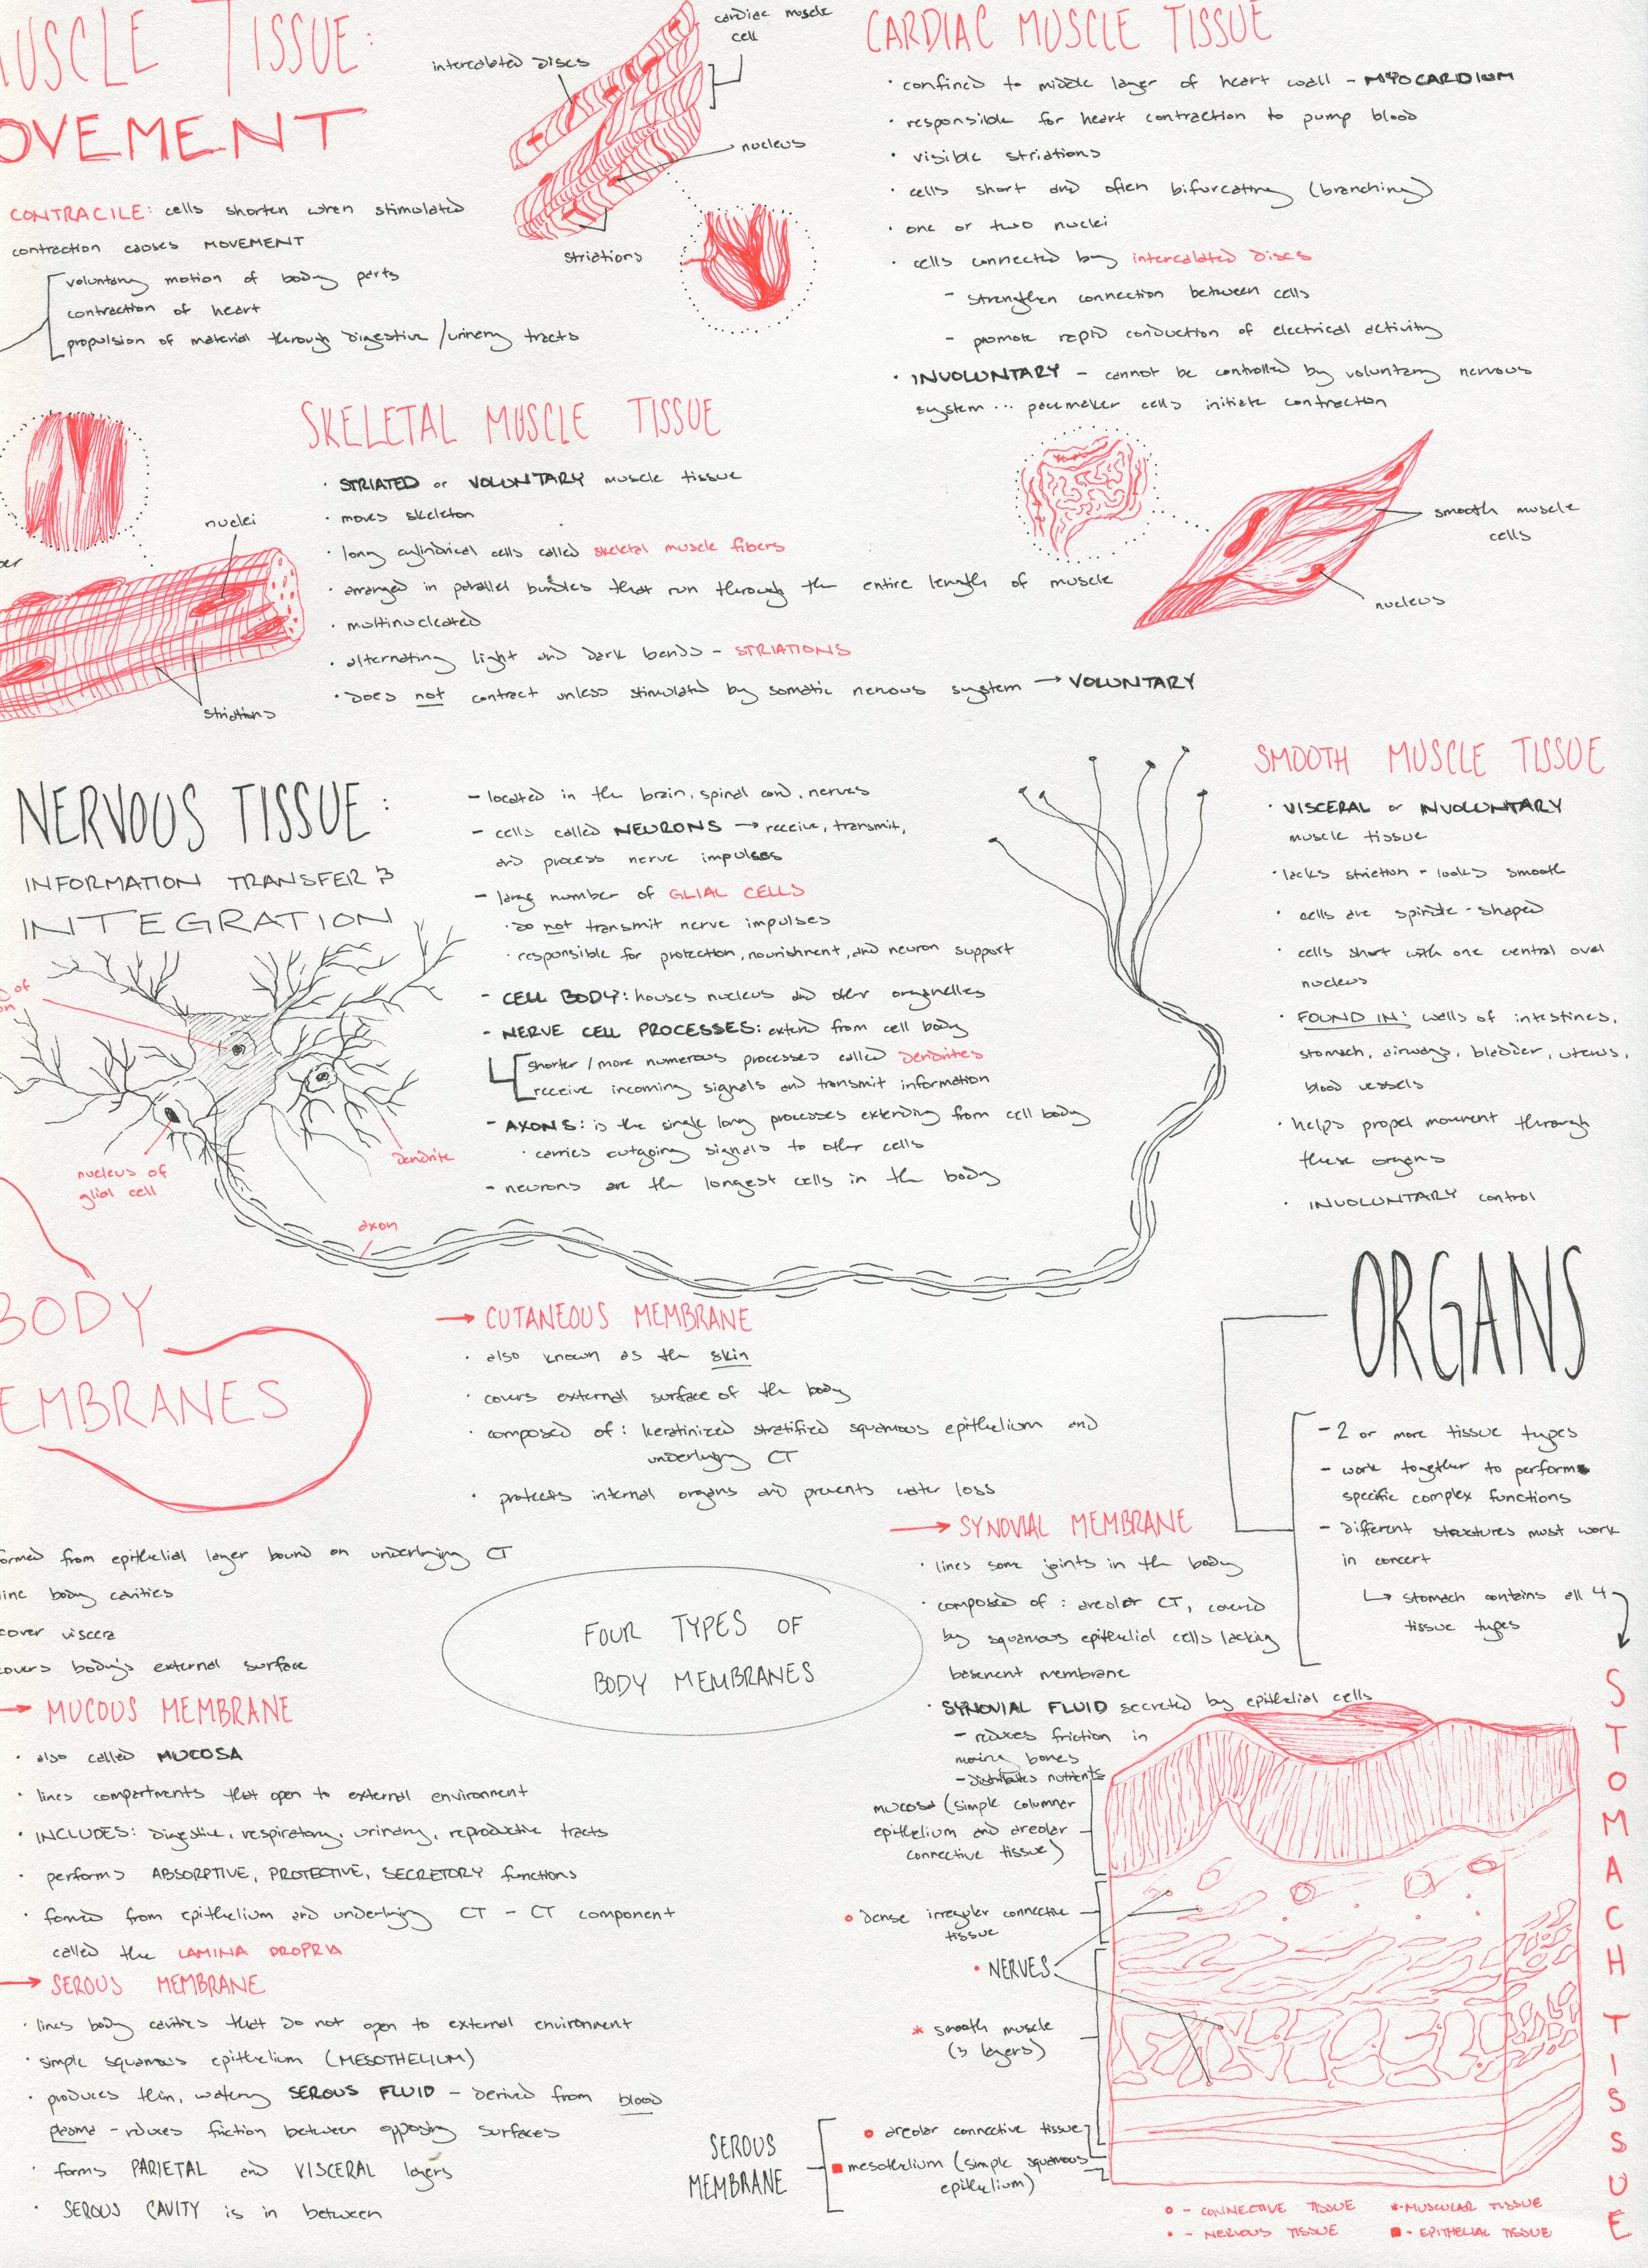 MUSCLE TISSUE:
OVEMENT
CONTRACILE: cells shorten when stimulated
contraction causes MOVEMENT
voluntary motion of body parts
contraction of heart
propulsion of material through digestive/urinary tracts
intercalated discs
cardiac muscle
cell
nucleus
striations
CARDIAC MUSCLE TISSUE
· confined to middle layer of heart wall - MYOCARDIUM
· responsible for heart contraction to pump blood
· visible striations
· cells short and often bifurcating (branching)
· one or two nuclei
· cells connected by intercalated discs
- strengthen connection between cells
- promote rapid conduction of electrical activity
· INVOLUNTARY - cannot be controlled by voluntary nervous
system... pacemaker cells initiate contraction
SKELETAL MUSCLE TISSUE
· STRIATED or VOLUNTARY muscle tissue
· moves skeleton
· long cylindrical cells called skeletal muscle fibers
· arranged in parallel bundles that run through the entire length of muscle
· multinucleated
· alternating light and dark bands - STRIATIONS
· does not contract unless stimulated by somatic nervous system → VOLUNTARY
nuclei
striations
smooth muscle
cells
nucleus
NERVOUS TISSUE:
INFORMATION TRANSFER &
INTEGRATION
- located in the brain, spinal cord, nerves
- cells called NEURONS → receive, transmit,
and process nerve impulses
- large number of GLIAL CELLS
· do not transmit nerve impulses
· responsible for protection, nourishment, and neuron support
- CELL BODY: houses nucleus and other organelles
- NERVE CELL PROCESSES: extend from cell body
shorter/more numerous processes called dendrites
receive incoming signals and transmit information
- AXONS: is the single long processes extending from cell body
· carries outgoing signals to other cells
- neurons are the longest cells in the body
of
on
nucleus of
glial cell
dendrite
axon
SMOOTH MUSCLE TISSUE
· VISCERAL or INVOLUNTARY
muscle tissue
· lacks striation - looks smooth
· cells are spindle-shaped
· cells short with one central oval
nucleus
· FOUND IN: walls of intestines,
stomach, airways, bladder, uterus,
blood vessels
· helps propel movment through
these organs
· INVOLUNTARY control
BODY
EMBRANES
ormed from epithelial layer bound on underlying CT
line body cavities
cover viscera
overs body's external surface
→ CUTANEOUS MEMBRANE
· also known as the skin
· covers external surface of the body
· composed of: keratinized stratified squamous epithelium and
underlying CT
· protects internal organs and prevents water loss
FOUR TYPES OF
BODY MEMBRANES
→ MUCOUS MEMBRANE
· also called MUCOSA
· lines compartments that open to external environment
· INCLUDES: digestive, respiratory, urinary, reproductive tracts
· performs ABSORPTIVE, PROTECTIVE, SECRETORY functions
· formed from epithelium and underlying CT - CT component
called the LAMINA PROPRIA
→ SEROUS MEMBRANE
· lines body cavities that do not open to external environment
· simple squamous epithelium (MESOTHELIUM)
· produces thin, watery SEROUS FLUID - derived from blood
plasma - reduces friction between opposing surfaces
· forms PARIETAL and VISCERAL layers
· SEROUS CAVITY is in between
→ SYNOVIAL MEMBRANE
· lines some joints in the body
· composed of: areolar CT, covered
by squamous epithelial cells lacking
basement membrane
· SYNOVIAL FLUID secreted by epithelial cells
- reduces friction in
moving bones
- distributes nutrients
ORGANS
- 2 or more tissue types
- work together to perform
specific complex functions
- different structures must work
in concert
↳ stomach contains all 4
tissue types
STOMACH TISSUE
mucosa (simple columnar
epithelium and areolar
connective tissue)
dense irregular connective
tissue
· NERVES
* smooth muscle
(3 layers)
SEROUS
MEMBRANE
areolar connective tissue
mesothelium (simple squamous
epithelium)
o - CONNECTIVE TISSUE
* - MUSCULAR TISSUE
• - NERVOUS TISSUE
■ - EPITHELIAL TISSUE